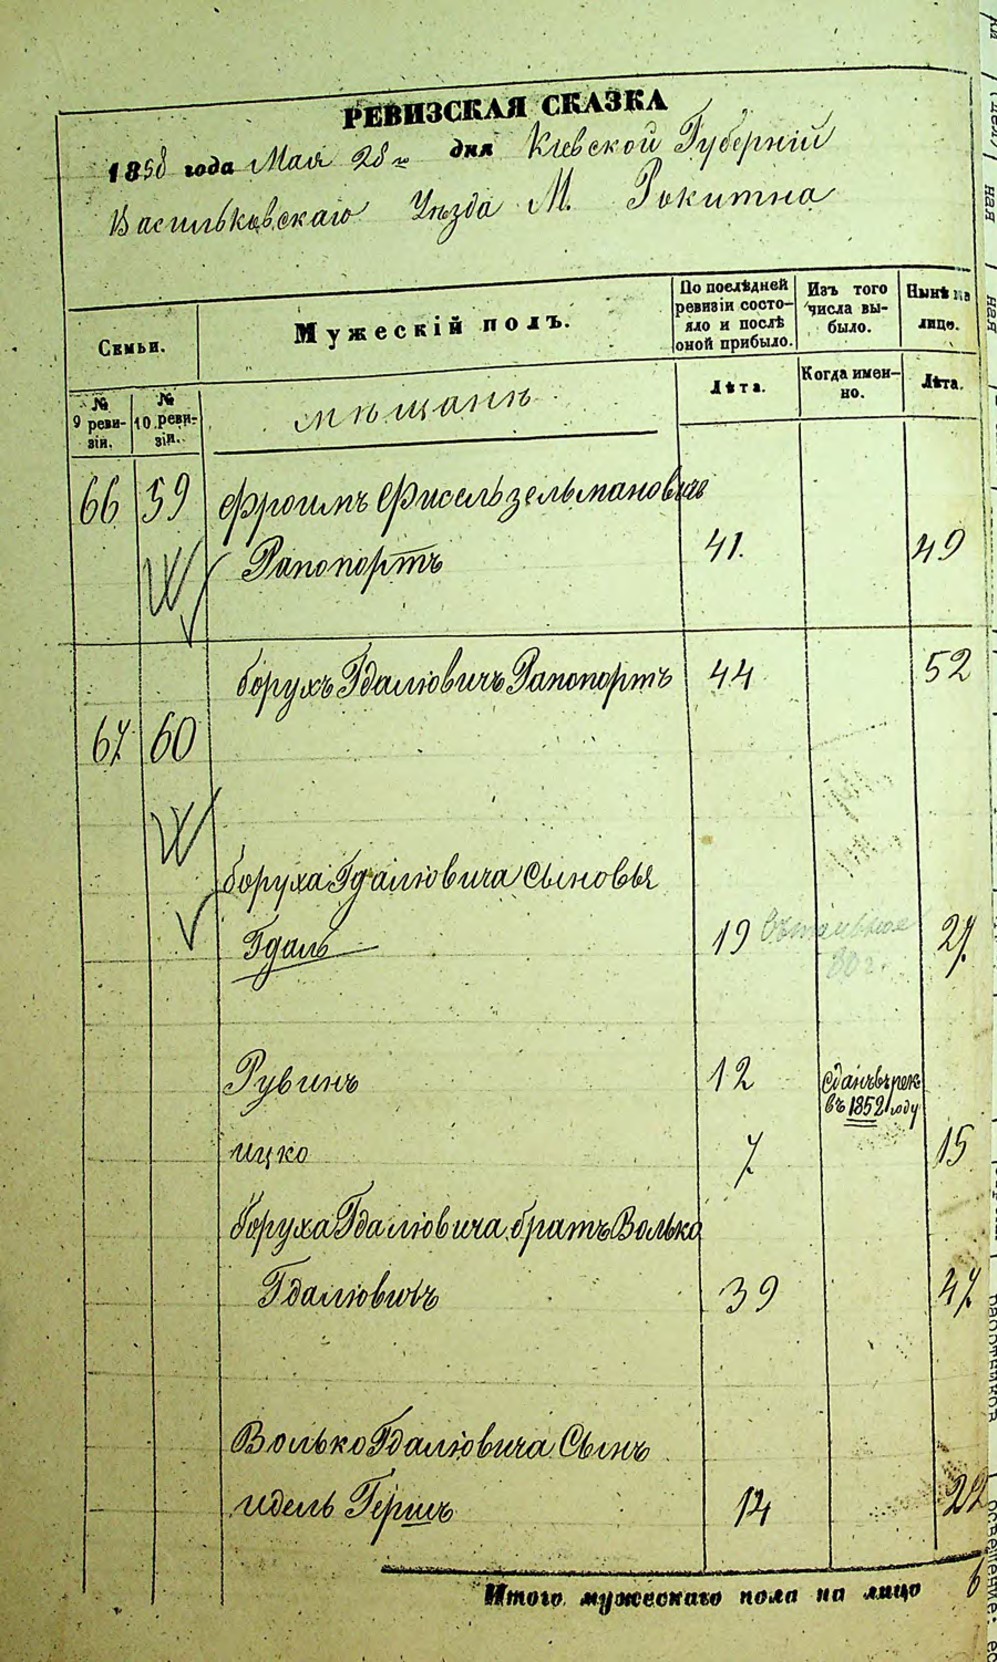 РЕВИЗСКАЯ СКАЗКА
1858 года Мая 28 дня Кіевской Губерніи
Васильковскаго Уѣзда М. Рокитна
Семьи.
Мужескій полъ.
По послѣдней ревизіи состо-
яло и послѣ
оной прибыло.
Изъ того
числа вы-
было.
Нынѣ на
лицо.
№
9 реви-
зіи.
№
10 реви-
зіи.
мѣщанѣ
Лѣта.
Когда имен-
но.
Лѣта.
66 59 Фроимъ Фисельзельмановичъ
Рапопортъ 41. 49
Борухъ Гдаліовичъ Рапопортъ 44 52
67 60
Боруха Гдаліовича Сыновья
Гдаль 19 27
Рувинъ 12 Сданъ въ рек
въ 1852 году
Ицко 7 15
Боруха Гдаліовича братъ Волько
Гдаліовичъ 39 47
Волько Гдаліовича Сынъ
Идель Гершъ 14 22
Итого мужескаго пола на лицо 6